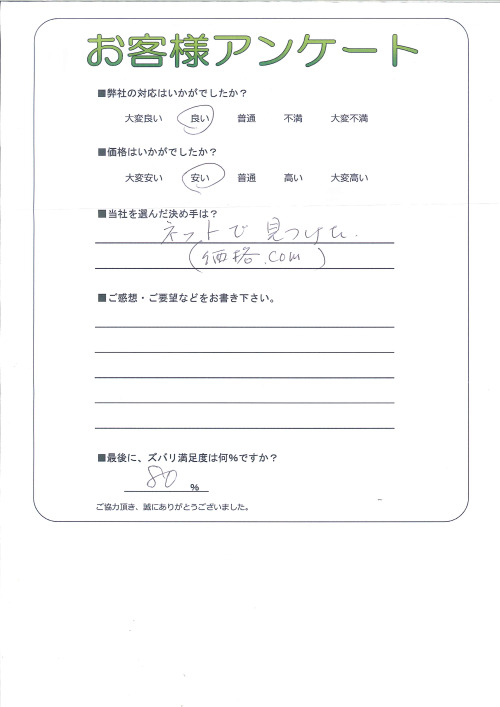 お客様アンケート
■弊社の対応はいかがでしたか？
大変良い 良い 普通 不満 大変不満
■価格はいかがでしたか？
大変安い 安い 普通 高い 大変高い
■当社を選んだ決め手は？
ネットで見つけた.
(価格.com)
■ご感想・ご要望などをお書き下さい。
■最後に、ズバリ満足度は何%ですか？
80 %
ご協力頂き、誠にありがとうございました。